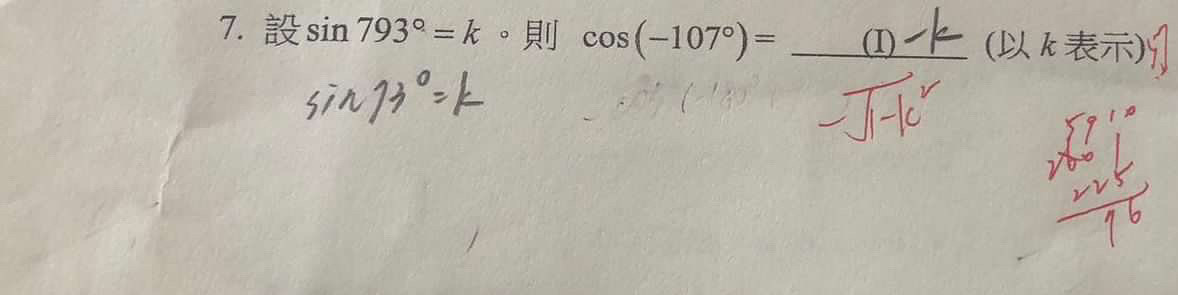 7. 設 sin 793° = k。則 cos(−107°) = (I) -k (以 k 表示)
sin 73° = k
-√1-k²
5 9 10
260 1
225
76